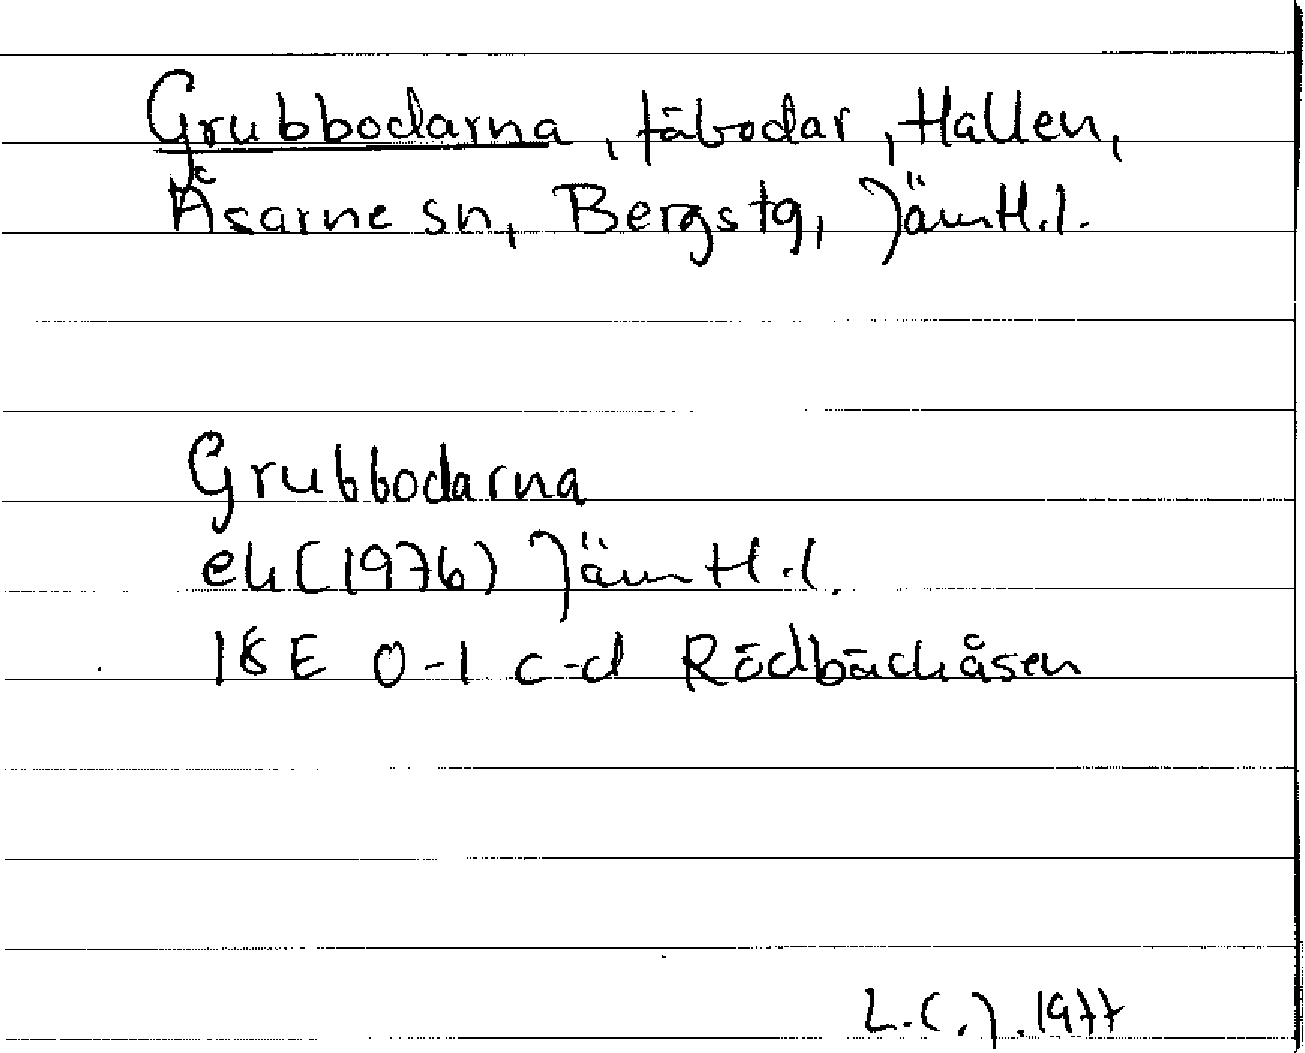 Grubbodarna, fäbodar, Hallen,
Åsarne sn, Bergs tg, Jämtl.l.
Grubbodarna
ek (1976) Jämtl.l.
18 E 0-1 c-d Rödbäckåsen
L.C.J. 1977